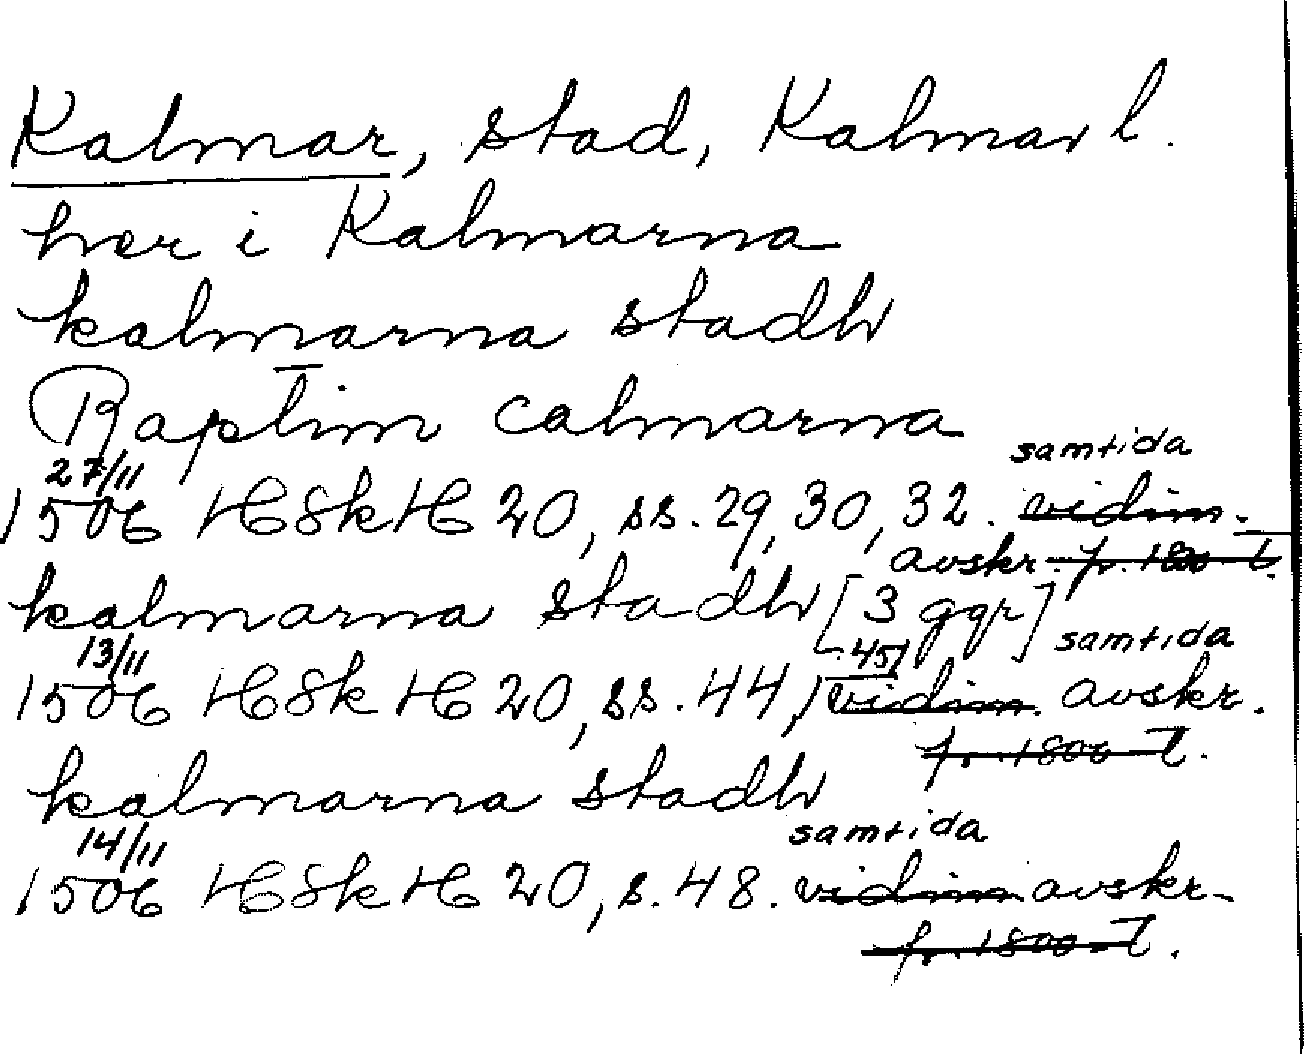 Kalmar, stad, Kalmar l.
her i Kalmarna
kalmarna stadh
Raptim calmarna
27/11 samtida
1506 HSkH 20, ss. 29, 30, 32. vidim.
avskr. fr. 1800-t.
kalmarna stadh [3 ggr]
13/11 45, samtida
1506 HSkH 20, ss. 44, vidim. avskr.
fr. 1800-t.
kalmarna stadh
14/11 samtida
1506 HSkH 20, s. 48. vidim avskr.
fr. 1800-t.